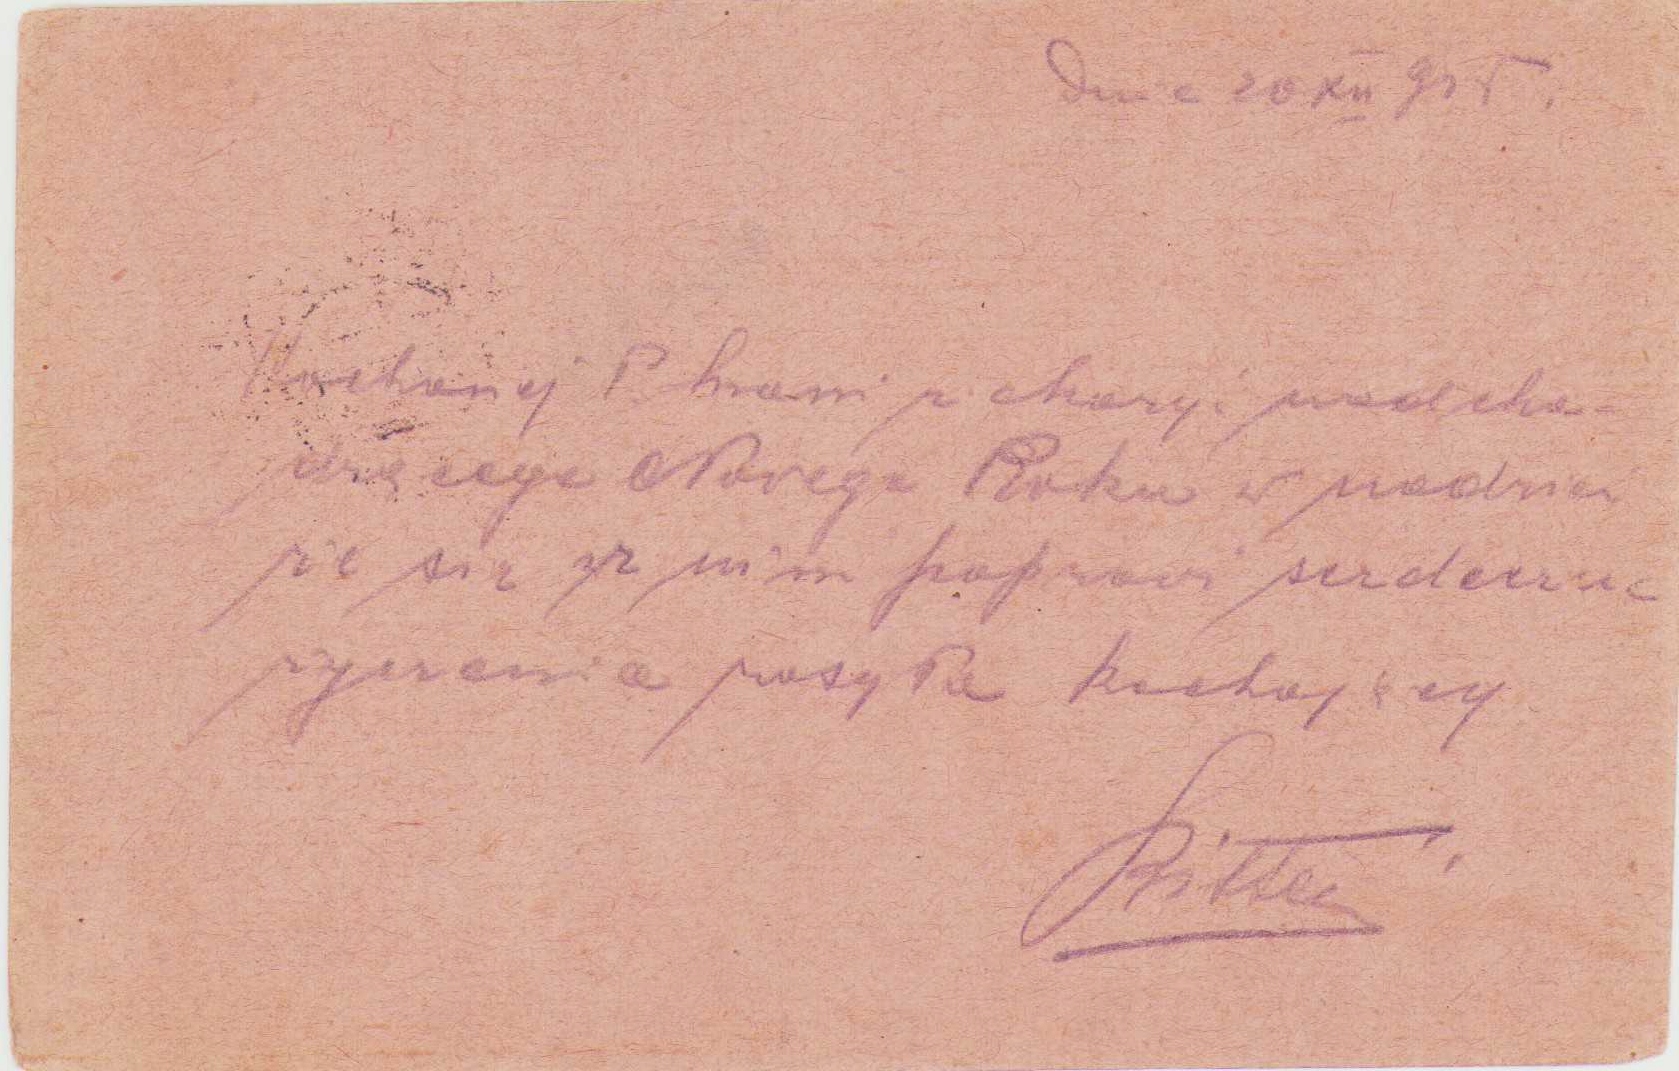 Dnia 20 XII 915.
Kochanej P. Frani z okazyi nadcho-
dzącego Nowego Roku w nadziei
że się z nim poprawi serdeczne
życzenia zasyła kochający
Ritter